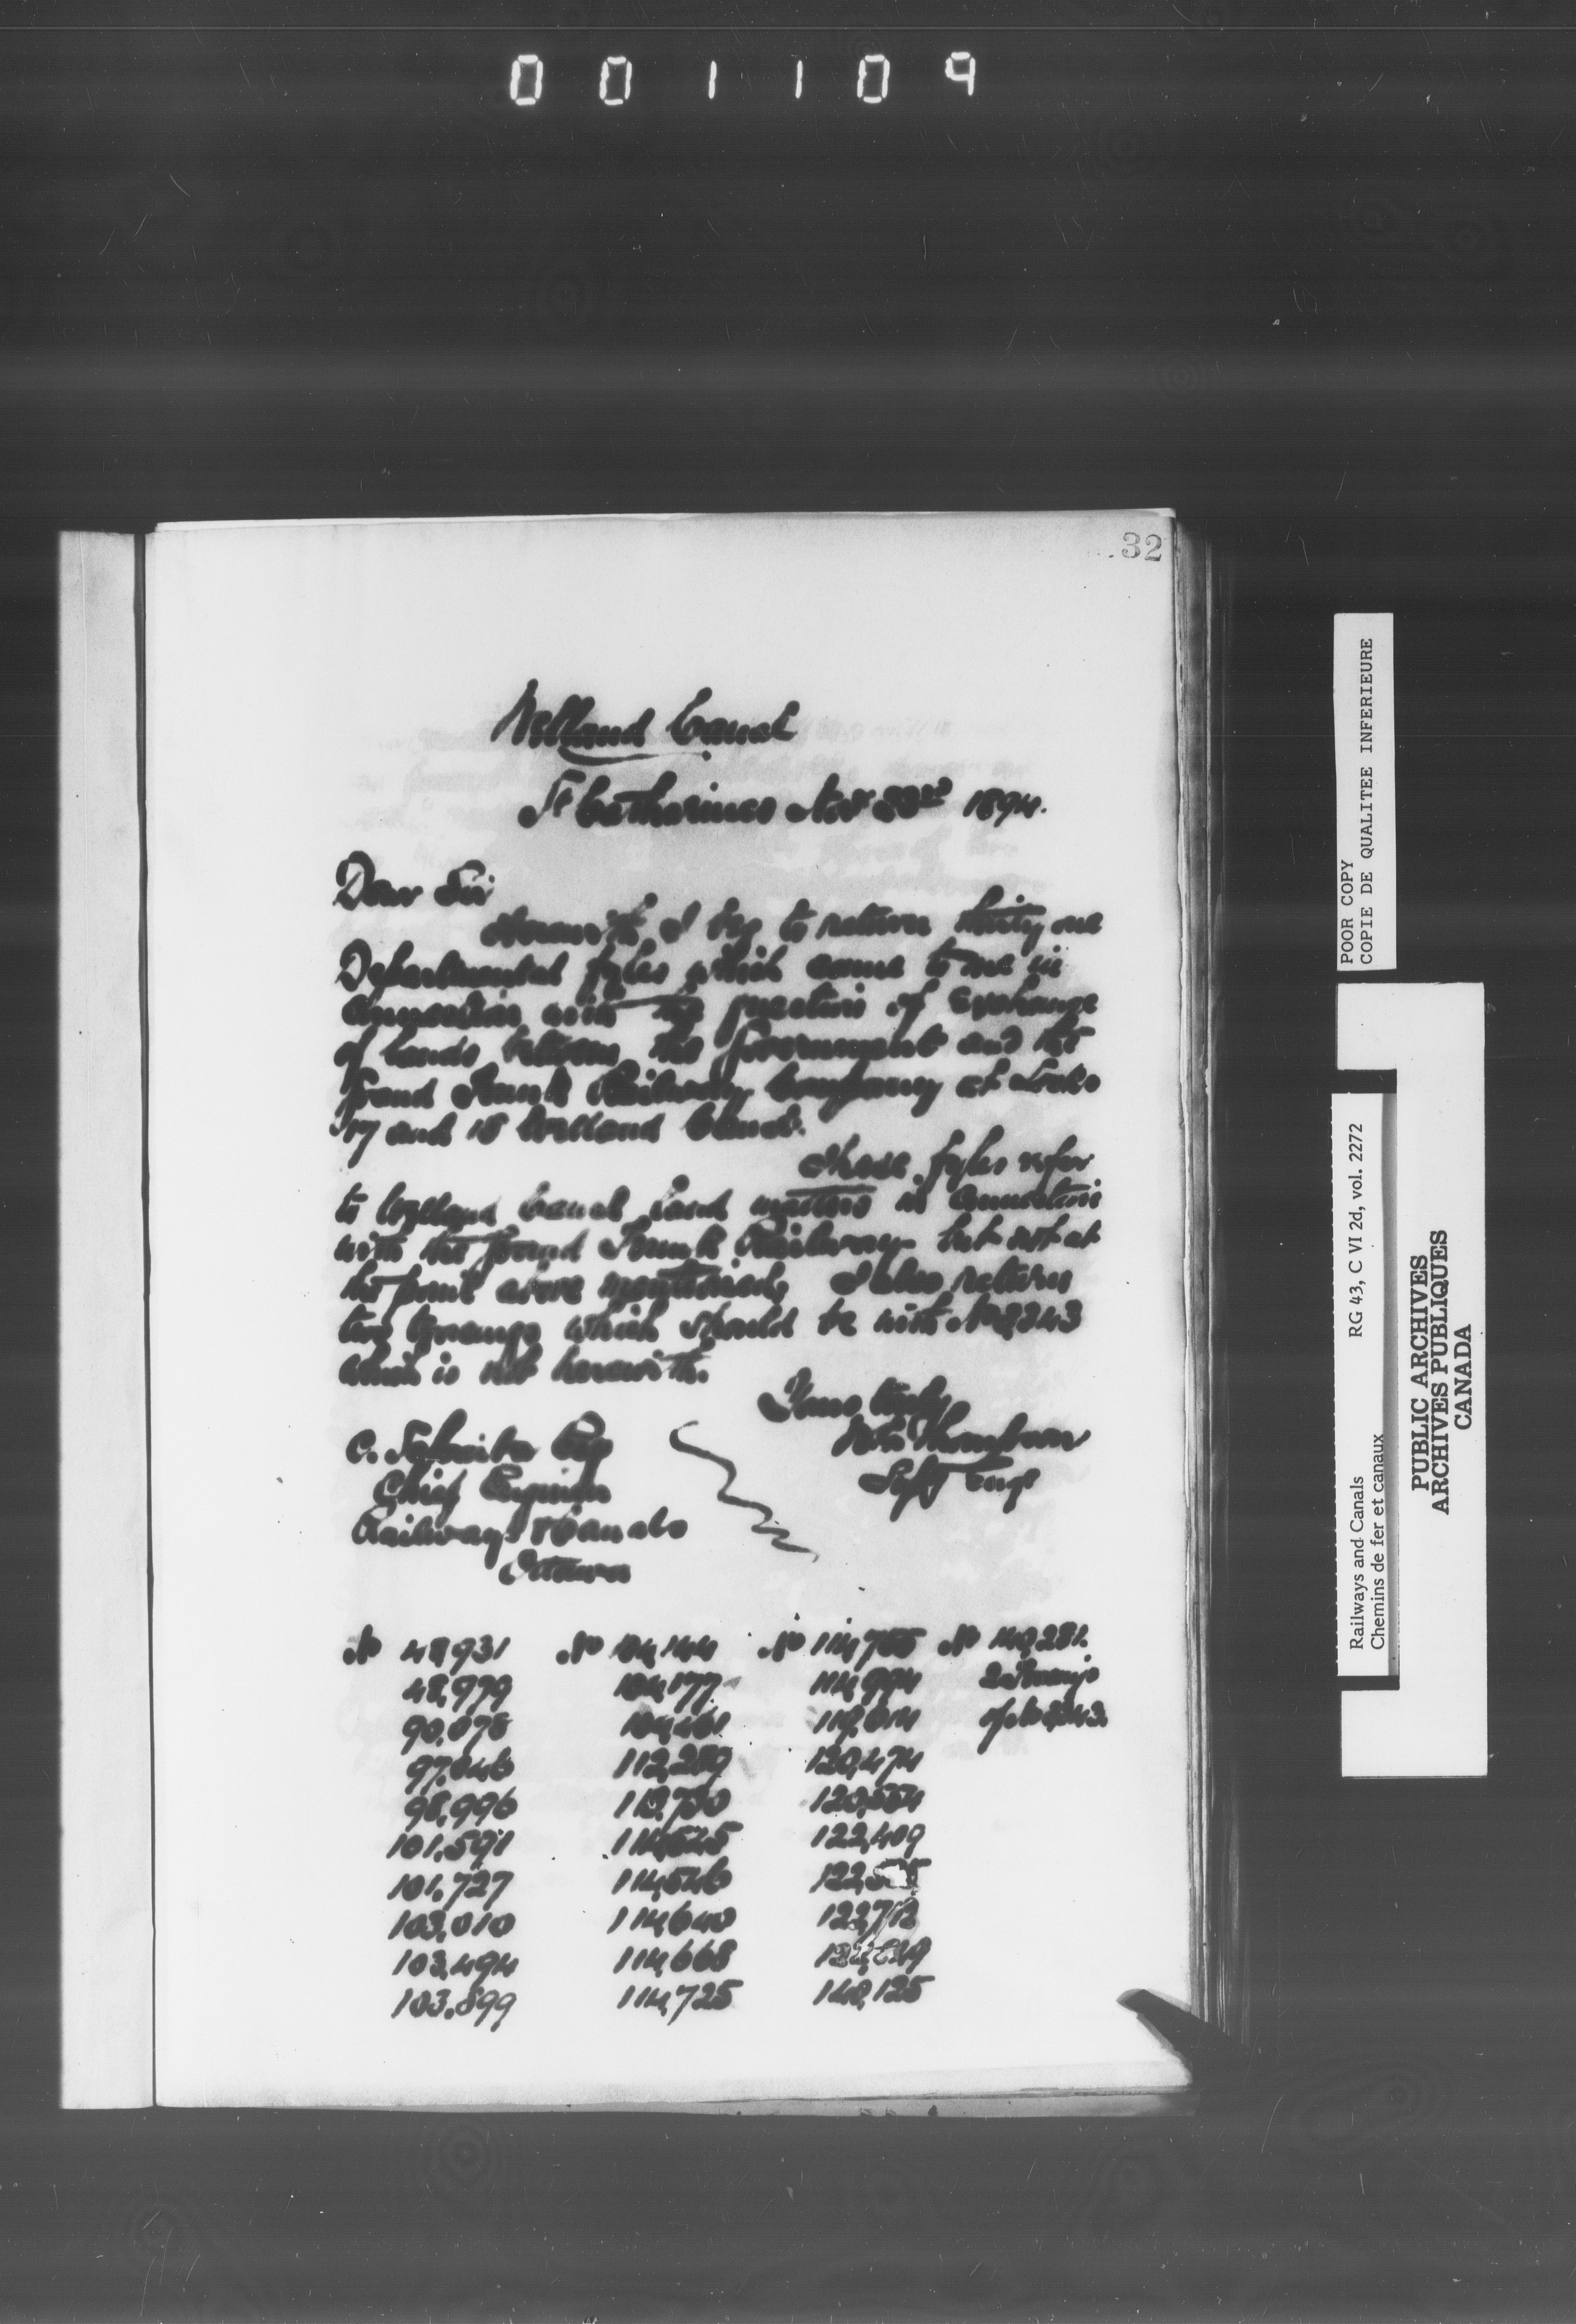 001109
32
Welland Canal
St Catharines Nov 23rd 1894.
Dear Sir
Herewith I beg to return thirty one
Departmental fyles which came to me in
connection with the question of Exchange
of lands between the Government and the
Grand Trunk Railway Company at Locks
17 and 18 Welland Canal.
These fyles refer
to Welland Canal land matters in connection
with the Grand Trunk Railway but not at
the point above mentioned, I also return
two tracings which should be with No
which is not herewith.
Yours truly
C. Schreiber Esq
Chief Engineer
Supt Engr
Railways & Canals
Ottawa
No 48,931 No 104,144 No 114,755 No 140,281.
48,979 104,177 114,994 2 Tracings
90,078 104,461 119,614 of No
97,046 112,289 120,474
98,996 113,730 120,554
101,591 122,409
101,727 114,546
103,010 114,640
103,494 114,668
103,899 114,725 148,125
POOR COPY
COPIE DE QUALITEE INFERIEURE
Railways and Canals RG 43, C VI 2d, vol. 2272
Chemins de fer et canaux
PUBLIC ARCHIVES
ARCHIVES PUBLIQUES
CANADA